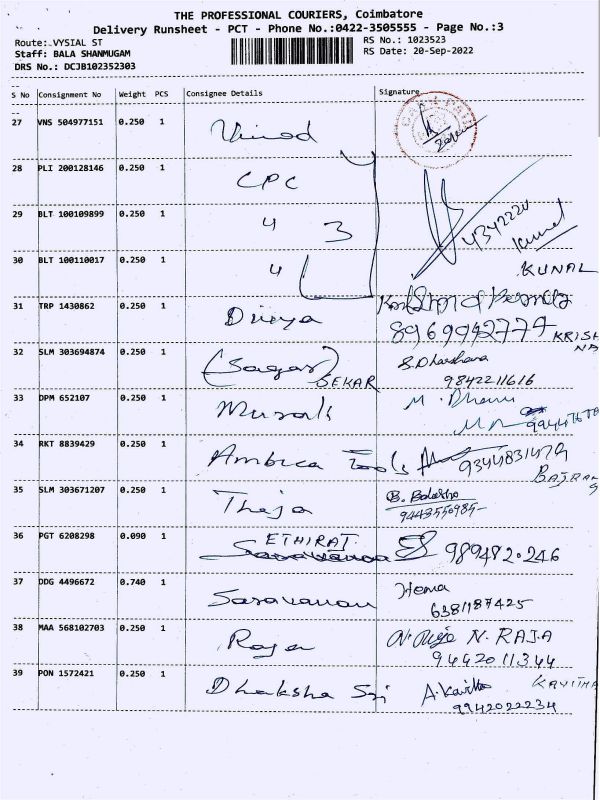 THE PROFESSIONAL COURIERS, Coimbatore
Delivery Runsheet - PCT - Phone No.:0422-3505555 - Page No.:3
Route: VYSIAL ST
RS No.: 1023523
Staff: BALA SHANMUGAM
RS Date: 20-Sep-2022
DRS No.: DCJB102352303
S No Consignment No Weight PCS Consignee Details Signature
27 VNS 504977151 0.250 1 Vinod
28 PLI 200128146 0.250 1 CPC
29 BLT 100109899 0.250 1 " 3 4342224
Kunal
30 BLT 100110017 0.250 1 " KUNAL
31 TRP 1430862 0.250 1 Divya
8969942774 KRISHNA
32 SLM 303694874 0.250 1 (Sagar) SEKAR S.Dharshana
9842211616
33 DPM 652107 0.250 1 Murali M. Dhanu
34 RKT 8839429 0.250 1 Ambica Tools 9344831479
BAJRANG
35 SLM 303671207 0.250 1 Theja B. Balasho
9443550985-
36 PGT 6208298 0.090 1 ETHIRAJ 989482.246
37 DDG 4496672 0.740 1 Saravanan Hema
6381187425
38 MAA 568102703 0.250 1 Raja N. Raja N. RAJA
9442011344
39 PON 1572421 0.250 1 Dhaksha Sri A.Kavitha KAVITHA
9942022234